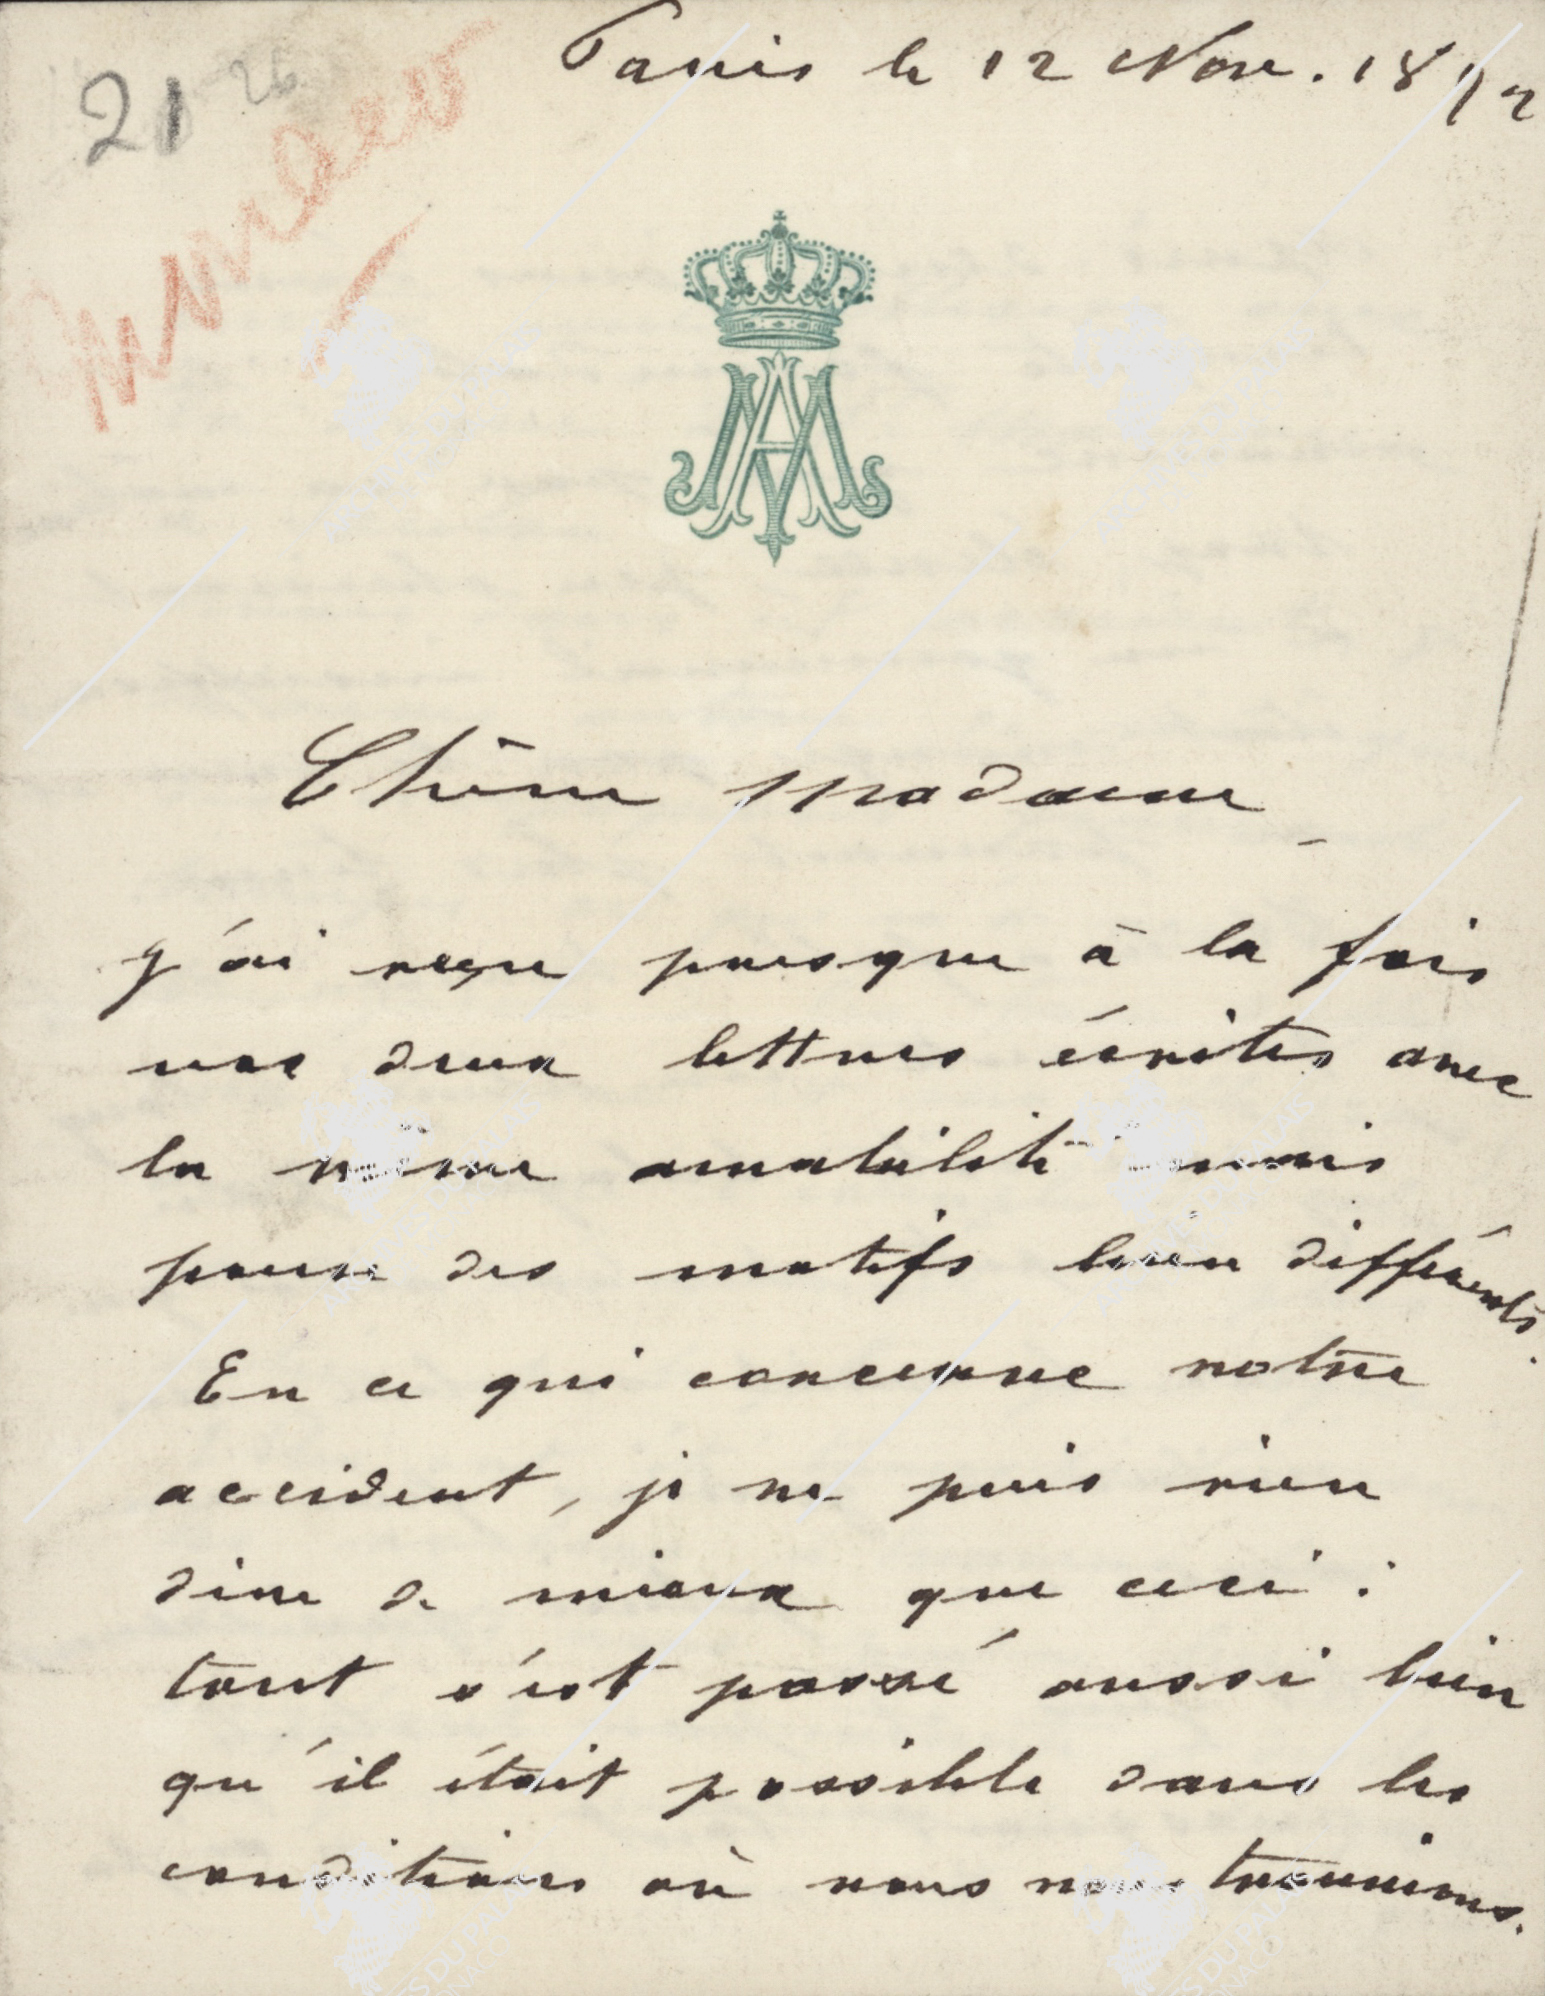 21 26
Paris le 12 Nov. 1892
AM
Chère Madame
J'ai reçu presque à la fois
vos deux lettres écrites avec
la même amabilité mais
pour des motifs bien différents.
En ce qui concerne notre
accident, je ne puis rien
dire de mieux que ceci :
tout s'est passé aussi bien
qu'il était possible dans les
conditions où nous nous trouvions.